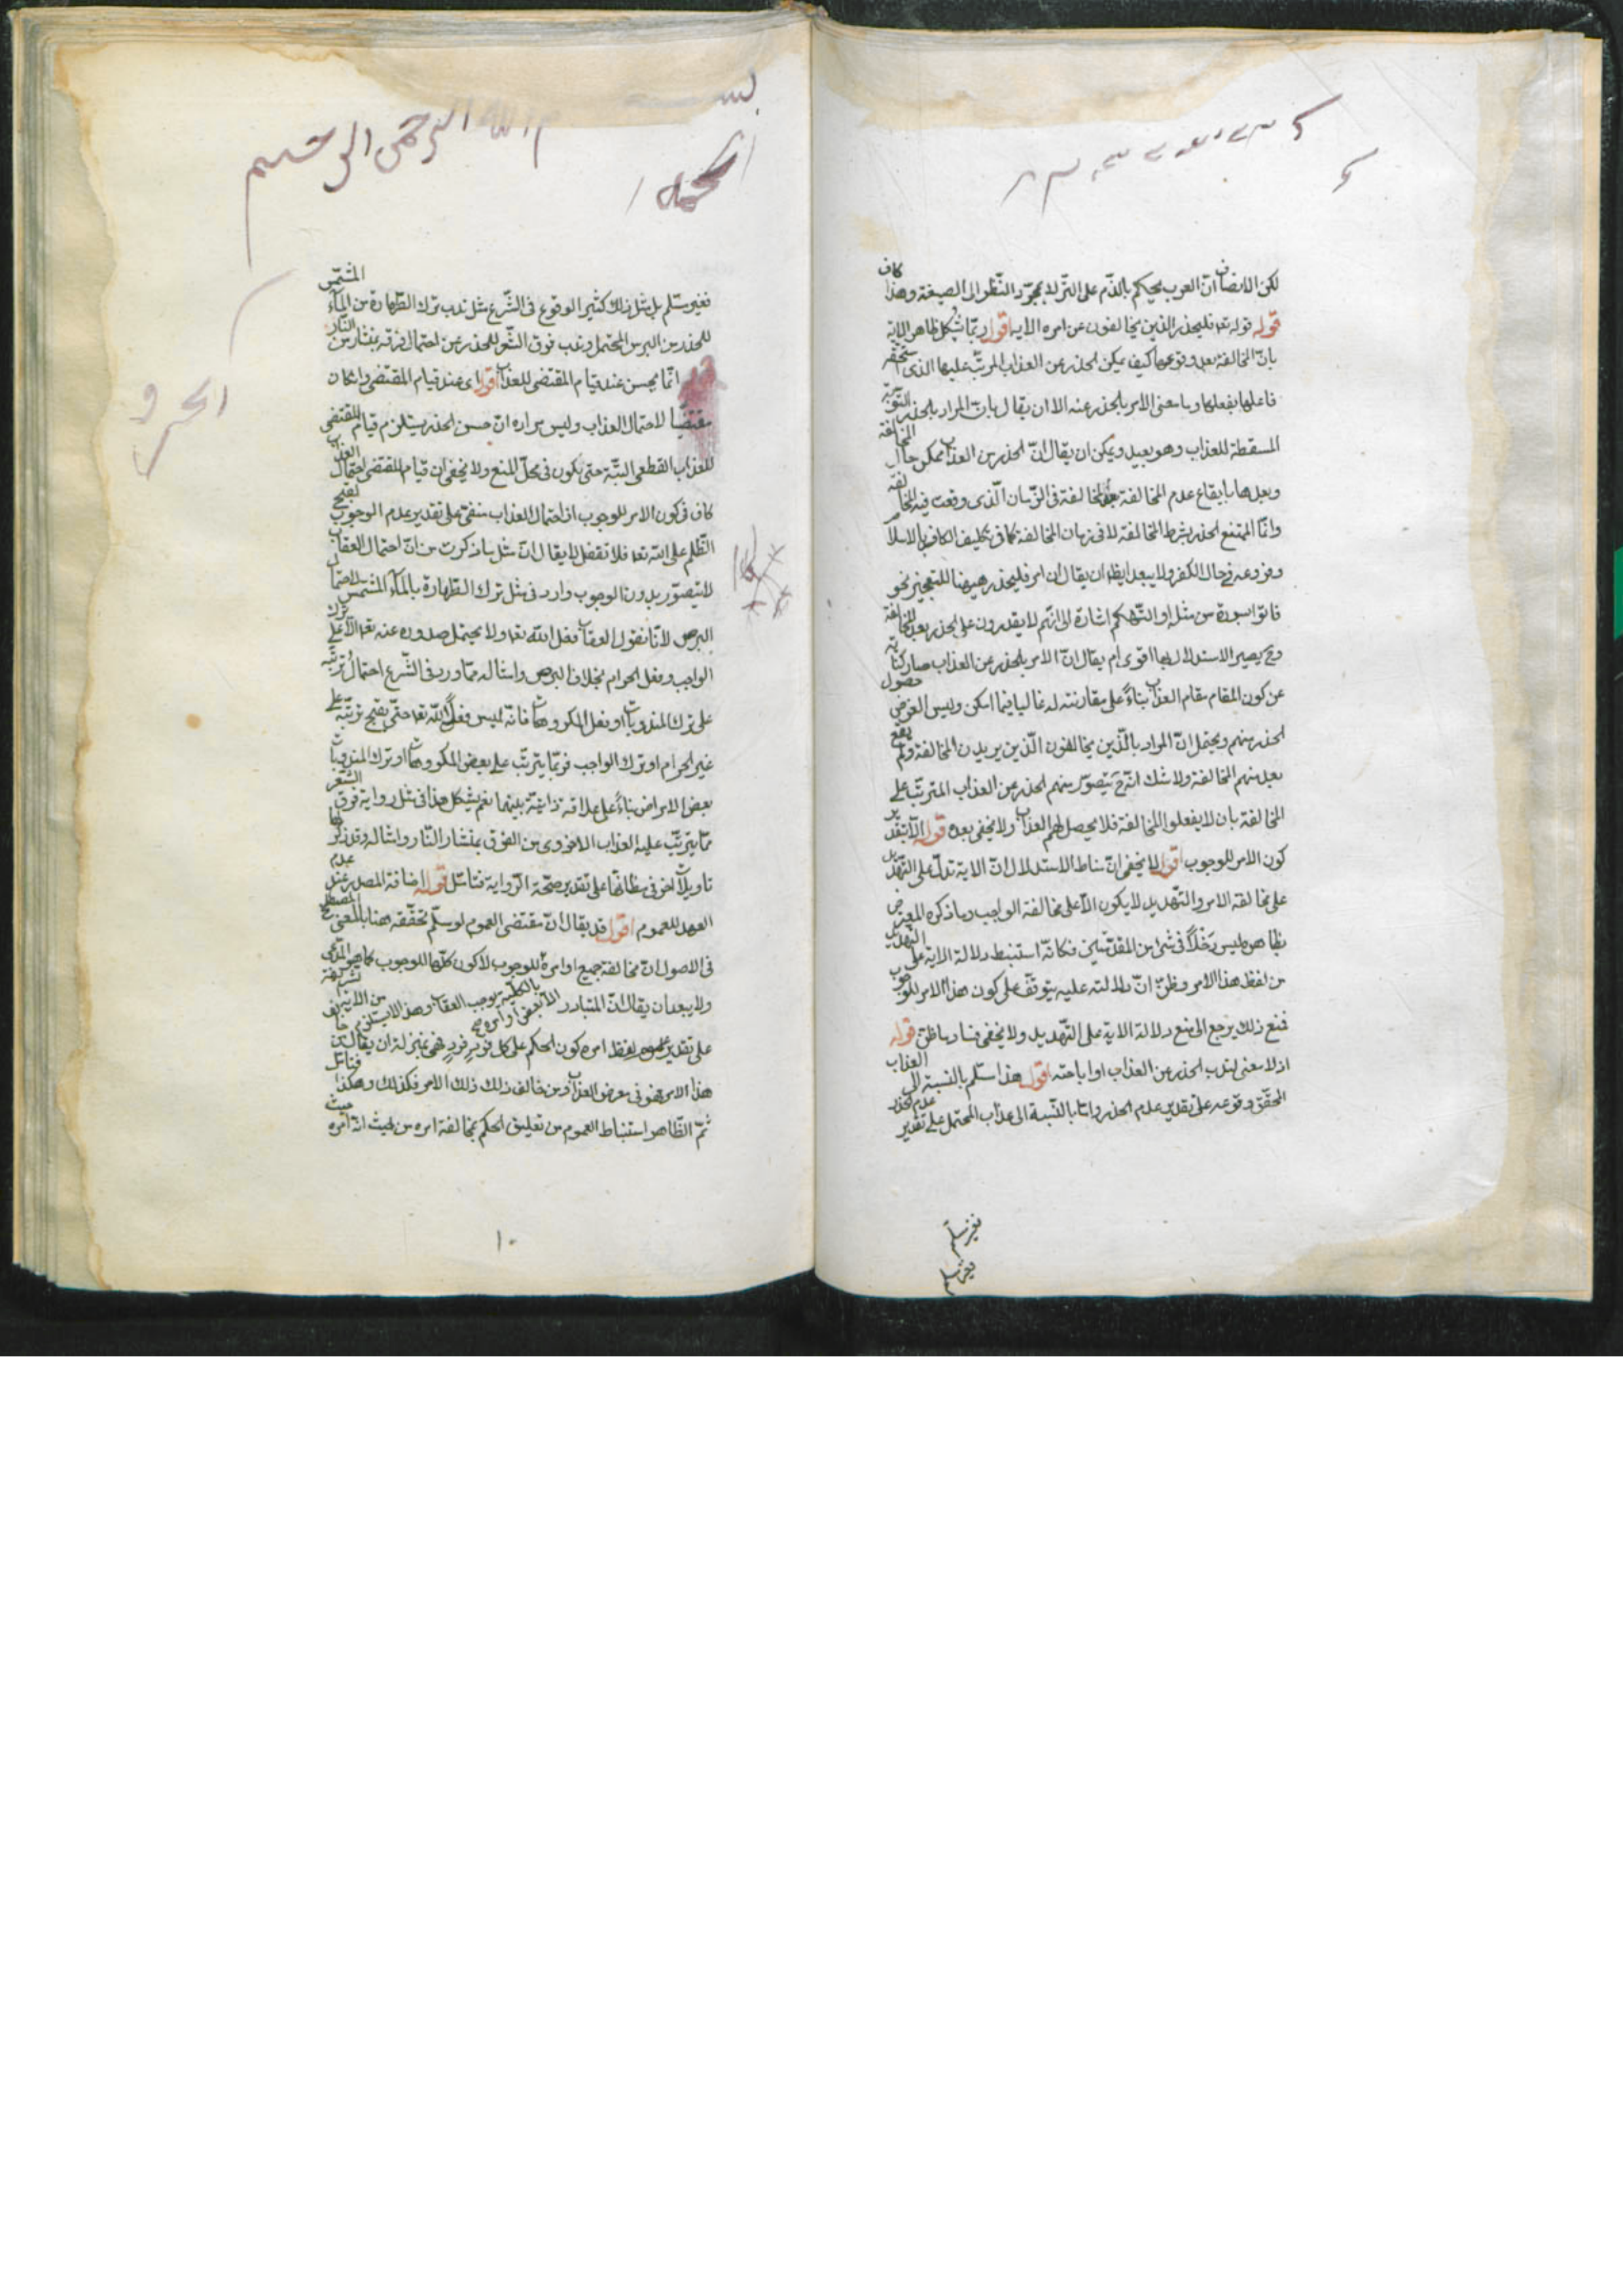 لكن الانصاف ان العرب يحكم بالذم على الترك بمجرد النظر الى الصيغة وهذا كاف
قوله قوله تعه فليحذر الذين يخالفون عن امره الاية اقول ربما يشكل ظاهر الاية
بان المخالفة بعد وقوعها كيف يمكن الحذر عن العذاب المرتب عليها الذى
فاعلها بفعلها وما معنى الامر بالحذر عنه الا ان يقال بان المراد بالحذر التوبة
المسقطة للعذاب وهو بعيد ويمكن ان يقال ان الحذر من العذاب ممكن حال المخالفة
وبعدها بايقاع عدم المخالفة بدل المخالفة فى الزمان الذى وقعت فيه المخالفة
وانما الممتنع الحذر بشرط المخالفة لا فى زمان المخالفة كما فى تكليف الكافر بالاسلام
وفروعه فى حال الكفر ولا يبعد ايضا ان يقال ان امر فليحذر هيهنا للتعجيز نحو
فاتوا بسورة من مثله او التهكم اشارة الى انهم لا يقدرون على الحذر بعد المخالفة
وح يصير الاستدلال بها اقوى ام يقال ان الامر بالحذر عن العذاب صار كناية
عن كون المقام مقام العذاب بناء على مقارنته له غالبا فيما امكن وليس الغرض حصول
الحذر منهم ويحتمل ان المراد بالذين يخالفون الذين يريدون المخالفة ولم يقع
بعد منهم المخالفة ولا شك انه ح يتصور منهم الحذر عن العذاب المترتب على
المخالفة بان لا يفعلوا المخالفة فلا يحصل لهم العذاب ولا يخفى بعده قوله الا بتقدير
كون الامر للوجوب اقول لا يخفى ان مناط الاستدلال ان الاية تدل على التهديد
على مخالفة الامر والتهديد لا يكون الا على مخالفة الواجب وما ذكره المعترض
بظاهره ليس دخلا فى شئ من المقدمتين فكانه استنبط دلالة الاية على التهديد
من لفظ هذا الامر وظن ان دلالته عليه يتوقف على كون هذا الامر للوجوب
فمنع ذلك يرجع الى منع دلالة الاية على التهديد ولا يخفى فساد ما ظن قوله
اذ لا معنى لندب الحذر عن العذاب او اباحته اقول هذا مسلم بالنسبة الى العذاب
المحقق وقوعه على تقدير عدم الحذر واما بالنسبة الى عذاب المحتمل على تقدير عدم الحذر
فغير مسلم
فغير مسلم
بسم الله الرحمن الرحيم
فغير مسلم بل مثل ذلك كثير الوقوع فى الشرع مثل ندب ترك الطهارة من الماء المشمس
للحذر من البرص المحتمل وندب فرق الشعر للحذر عن احتمال فرقه بمنشار من النار
انما يحسن عند قيام المقتضى للعذاب اقول اى عند قيام المقتضى وان كان
مقتضيا لاحتمال العذاب وليس مراده ان حسن الحذر يستلزم قيام المقتضى
للعذاب القطعى البتة حتى يكون فى محل المنع ولا يخفى ان قيام المقتضى احتمال العذاب
كاف فى كون الامر للوجوب اذ احتمال العذاب منفى على تقدير عدم الوجوب لقبح
الظلم على الله تعه فلا تغفل لا يقال ان مثل ما ذكرت من ان احتمال العقاب
لا يتصور بدون الوجوب وارد فى مثل ترك الطهارة بالماء المشمس لاحتمال
البرص لانا نقول العقاب فعل الله تعه ولا يحتمل صدوره عنه تعه الا على ترك
الواجب وفعل الحرام بخلاف البرص وامثاله مما ورد فى الشرع احتمال ترتبه
على ترك المندوبات او فعل المكروهات فانه ليس فعل الله تعه حتى يقبح ترتبه على
غير الحرام او ترك الواجب فربما يترتب على بعض المكروهات او ترك المندوبات
بعض الامراض بناء على علاقة ذاتية بينهما نعم يشكل هذا فى مثل رواية فرق الشعر
مما يترتب عليه العذاب الاخروى من الفرق بمنشار النار وامثاله وقد ذكر لها
تاويلات اخر فى مظانها على تقدير صحة الرواية فتامل قوله اضافة المصدر عند عدم
العهد للعموم اقول قد يقال ان مقتضى العموم لو سلم تحققه هنا بالمعنى المصطلح
فى الاصول ان مخالفة جميع اوامره للوجوب لا كون كلها للوجوب كما هو المدعى
ولا يبعد ان يقال ان المتبادر من الاية
على تقدير عموم لفظ امره كون الحكم على كل فرد فرد فهى بمنزلة ان يقال من خالف
هذا الامر فهو فى معرض العذاب ومن خالف ذلك ذلك الامر فكذلك وهكذا فتامل
ثم الظاهر استنباط العموم من تعليق الحكم بمخالفة امره من حيث انه امره
١٠